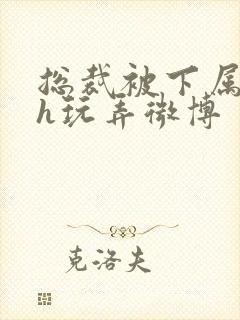 总裁被下属
h玩弄微博
克洛夫